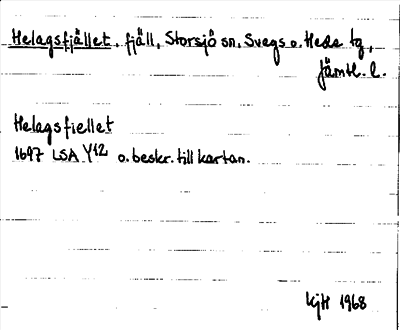 Helagsfjället, fjäll, Storsjö sn, Svegs o. Hede tg,
Jämtl. l.
Helagsfiellet
1697 LSA Y12 o. beskr. till kartan.
KjH 1968